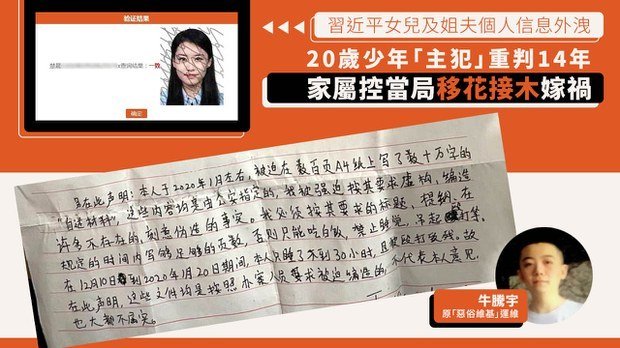 验证结果
查询结果：一致
确定
習近平女兒及姐夫個人信息外洩
20歲少年「主犯」重判14年
家屬控當局移花接木嫁禍
在此声明：本人于2020年1月左右，被迫在数百页A4纸上写了数十万字的
"自述材料"，这些内容均是由公安指定的，我被强迫按其要求虚构、编造
许多不存在的，刻意伪造的事实。我必须按其要求的标题、提纲，在
规定的时间内写够足够的页数，否则只能吃白饭，禁止睡觉，吊起打等。
在12月10日到2020年1月20日期间，本人只睡了不到30小时，且被殴打致残。故
在此声明，这些文件均是按照办案人员要求被迫编造的，不代表本人意见，
也大都不属实。
牛騰宇
原「惡俗維基」運維